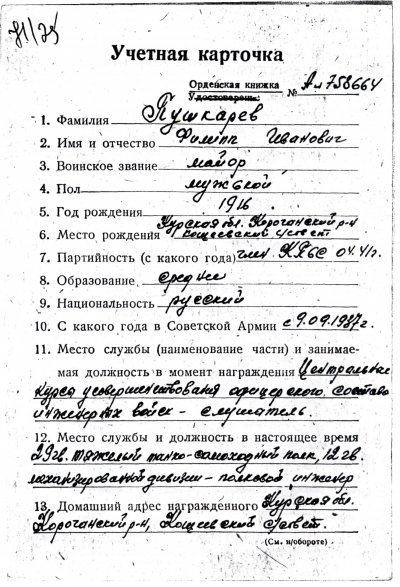 71/75
Учетная карточка
Орденская книжка
Удостоверение № А л 758664
1. Фамилия Пушкарев
2. Имя и отчество Филипп Иванович
3. Воинское звание майор
4. Пол мужской
5. Год рождения 1916
Курская обл. Корочанский р-н
6. Место рождения Кощеевский с/совет
7. Партийность (с какого года) член КПСС 04.41г.
8. Образование среднее
9. Национальность русский
10. С какого года в Советской Армии с 9.09.1937г.
11. Место службы (наименование части) и занимае-
мая должность в момент награждения Центральные
курсы усовершенствования офицерского состава
инженерных войск - слушатель.
12. Место службы и должность в настоящее время
29 гв. тяжелый танко-самоходный полк, 12 гв.
механизированной дивизии - полковой инженер
13. Домашний адрес награжденного Курская обл.
Корочанский р-н, Кощеевский с/совет.
(См. н/обороте)